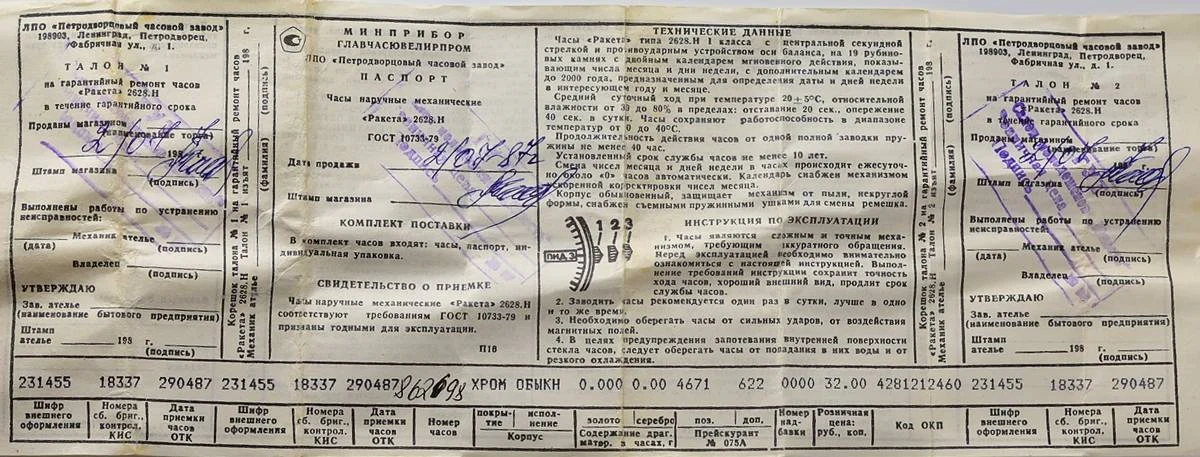 ЛПО «Петродворцовый часовой завод»
198903, Ленинград, Петродворец,
Фабричная ул., д. 1.
ТАЛОН № 1
на гарантийный ремонт часов
«Ракета» 2628.Н
в течение гарантийного срока
Проданы магазином
(наименование торга)
2/07 198
Штамп магазина
(подпись)
Выполнены работы по устранению
неисправностей:
Механик ателье
(дата) (подпись)
Владелец
(подпись)
УТВЕРЖДАЮ
Зав. ателье
(наименование бытового предприятия)
Штамп
ателье 198 г.
(подпись)
Корешок талона № 1 на гарантийный ремонт часов
«Ракета» 2628.Н Талон № 1 изъят 198 г.
Механик ателье (фамилия) (подпись)
МИНПРИБОР
ГЛАВЧАСЮВЕЛИРПРОМ
ЛПО «Петродворцовый часовой завод»
ПАСПОРТ
Часы наручные механические
«Ракета» 2628.Н
ГОСТ 10733-79
Дата продажи 2/07-87г
Штамп магазина
КОМПЛЕКТ ПОСТАВКИ
В комплект часов входят: часы, паспорт, ин-
дивидуальная упаковка.
СВИДЕТЕЛЬСТВО О ПРИЕМКЕ
Часы наручные механические «Ракета» 2628.Н
соответствуют требованиям ГОСТ 10733-79 и
признаны годными для эксплуатации.
П16
ТЕХНИЧЕСКИЕ ДАННЫЕ
Часы «Ракета» типа 2628.Н I класса с центральной секундной
стрелкой и противоударным устройством оси баланса, на 19 рубино-
вых камнях с двойным календарем мгновенного действия, показы-
вающим числа месяца и дни недели, с дополнительным календарем
до 2000 года, предназначенным для определения даты и дней недели
в интересующем году и месяце.
Средний суточный ход при температуре 20±5°С, относительной
влажности от 30 до 80% в пределах: отставание 20 сек., опережение
40 сек. в сутки. Часы сохраняют работоспособность в диапазоне
температур от 0 до 40°С.
Продолжительность действия часов от одной полной заводки пру-
жины не менее 40 час.
Установленный срок службы часов не менее 10 лет.
Смена чисел месяца и дней недели в часах происходит ежесуточ-
но около «0» часов автоматически. Календарь снабжен механизмом
ускоренной корректировки чисел месяца.
Корпус обыкновенный, защищает механизм от пыли, некруглой
формы, снабжен съемными пружинными ушками для смены ремешка.
1 2 3
ПНД 3
ИНСТРУКЦИЯ ПО ЭКСПЛУАТАЦИИ
1. Часы являются сложным и точным меха-
низмом, требующим аккуратного обращения.
Перед эксплуатацией необходимо внимательно
ознакомиться с настоящей инструкцией. Выпол-
нение требований инструкции сохранит точность
хода часов, хороший внешний вид, продлит срок
службы часов.
2. Заводить часы рекомендуется один раз в сутки, лучше в одно
и то же время.
3. Необходимо оберегать часы от сильных ударов, от воздействия
магнитных полей.
4. В целях предупреждения запотевания внутренней поверхности
стекла часов, следует оберегать часы от попадания в них воды и от
резкого охлаждения.
Корешок талона № 2 на гарантийный ремонт часов
«Ракета» 2628.Н Талон № 2 изъят 198 г.
Механик ателье (фамилия) (подпись)
ЛПО «Петродворцовый часовой завод»
198903, Ленинград, Петродворец,
Фабричная ул., д. 1.
ТАЛОН № 2
на гарантийный ремонт часов
«Ракета» 2628.Н
в течение гарантийного срока
Проданы магазином
(наименование торга)
Штамп магазина
(подпись)
Выполнены работы по устранению
неисправностей:
Механик ателье
(дата) (подпись)
Владелец
(подпись)
УТВЕРЖДАЮ
Зав. ателье
(наименование бытового предприятия)
Штамп
ателье 198 г.
(подпись)
231455 18337 290487 231455 18337 290487 862698 ХРОМ ОБЫКН 0.000 0.00 4671 622 0000 32.00 4281212460 231455 18337 290487
Шифр внешнего оформления
Номера сб. бриг., контрол. КИС
Дата приемки часов ОТК
Шифр внешнего оформления
Номера сб. бриг., контрол. КИС
Дата приемки часов ОТК
Номер часов
покры-тие
испол-нение
Корпус
золото серебро
Содержание драг. матер. в часах, г
поз. доп.
Прейскурант № 075А
Номер над-бавки
Розничная цена: руб., коп.
Код ОКП
Шифр внешнего оформления
Номера сб. бриг., контрол. КИС
Дата приемки часов ОТК